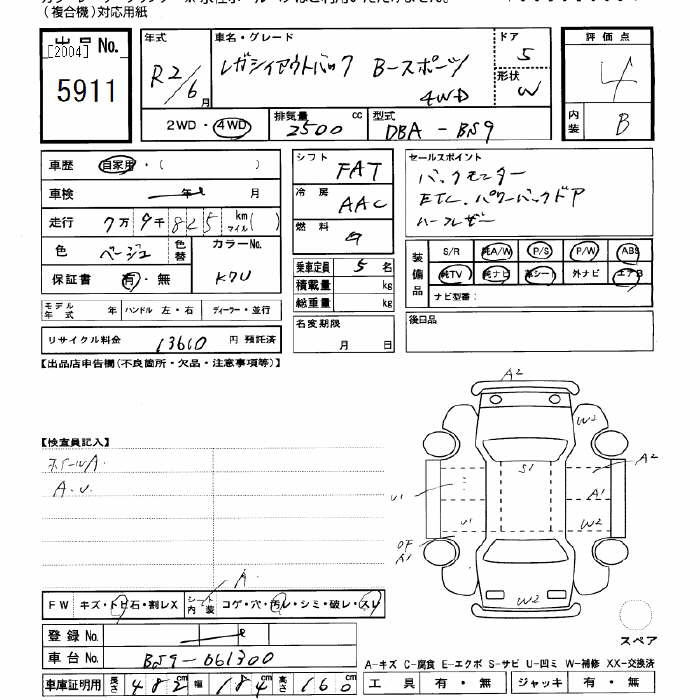 (複合機)対応用紙
出品 No.
[2004]
5911
年式
R2/6月
車名・グレード
レガシィアウトバック Bースポーツ
4WD
ドア
5
形状
W
2WD・4WD
排気量 2500 cc
型式 DBA-BS9
評価点
4
内装
B
車歴 自家用・( )
車検 年 月
走行 7万9千825 km マイル( )
色 ベージュ 色替 カラーNo. K7U
保証書 有・無
モデル年式 年 ハンドル 左・右 ディーラー・並行
リサイクル料金 13610 円 預託済
シフト FAT
冷房 AAC
燃料 G
乗車定員 5 名
積載量 kg
総重量 kg
名変期限
月 日
セールスポイント
バックモニター
ETC.パワーバックドア
ハーフレザー
装備品
S/R 純A/W P/S P/W ABS
純TV 純ナビ 革シート 外ナビ エアB
ナビ型番:
後日品
【出品店申告欄(不良箇所・欠品・注意事項等)】
【検査員記入】
ホイールA.
A.U.
A2
W2
A2
S1
U1
A1
U1
W2
A1
W2
A
FW キズ・トビ石・割レX シート内装 コゲ・穴・汚レ・シミ・破レ・スレ
登録 No.
車台 No. BS9-061300
車庫証明用 長さ 482 cm 幅 184 cm 高さ 160 cm
スペア
A-キズ C-腐食 E-エクボ S-サビ U-凹ミ W-補修 XX-交換済
工具 有・無 ジャッキ 有・無